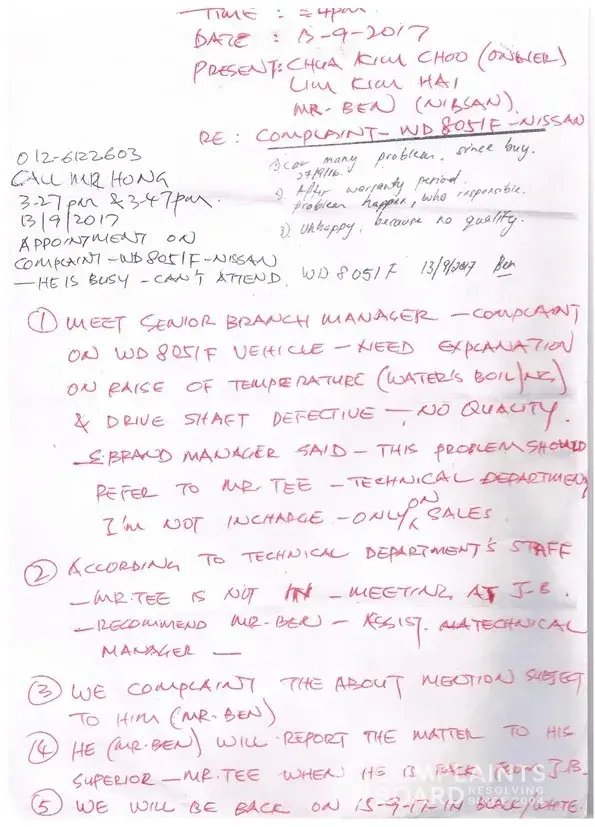 TIME : ± 4pm
DATE : 13-9-2017
PRESENT: CHUA KIM CHOO (OWNER)
LIM KIM HAI
MR. BEN (NISSAN)
RE : COMPLAINT - WD 8051F - NISSAN
012-6122603
CALL MR HONG
3.27 pm & 3.47pm.
13/9/2017
APPOINTMENT ON
COMPLAINT - WD 8051F - NISSAN
— HE IS BUSY - CAN'T ATTEND.
1) Car many problem, since buy.
27/9/16.
2) After warranty period.
problem happen, who responsible.
3) Unhappy, because no quality.
WD 8051F 13/9/2017 Ben
① MEET SENIOR BRANCH MANAGER — COMPLAINT
ON WD 8051F VEHICLE — NEED EXPLANATION
ON RAISE OF TEMPERATURE (WATER'S BOILING)
& DRIVE SHAFT DEFECTIVE — NO QUALITY.
S. BRAND MANAGER SAID — THIS PROBLEM SHOULD
REFER TO MR. TEE — TECHNICAL DEPARTMENT
I'm NOT INCHARGE — ONLY ON SALES.
② ACCORDING TO TECHNICAL DEPARTMENT'S STAFF
— MR. TEE IS NOT IN — MEETING AT J-B.
— RECOMMEND MR. BEN — ASSIST. TECHNICAL
MANAGER —
③ WE COMPLAINT THE ABOUT MENTION SUBJECT
TO HIM (MR. BEN)
④ HE (MR. BEN) WILL REPORT THE MATTER TO HIS
SUPERIOR — MR. TEE WHEN HE IS BACK FROM J.B.
⑤ WE WILL BE BACK ON 15-9-17 IN BLACK/WHITE.
COMPLAINTS
BOARD
RESOLVING
SINCE 2004